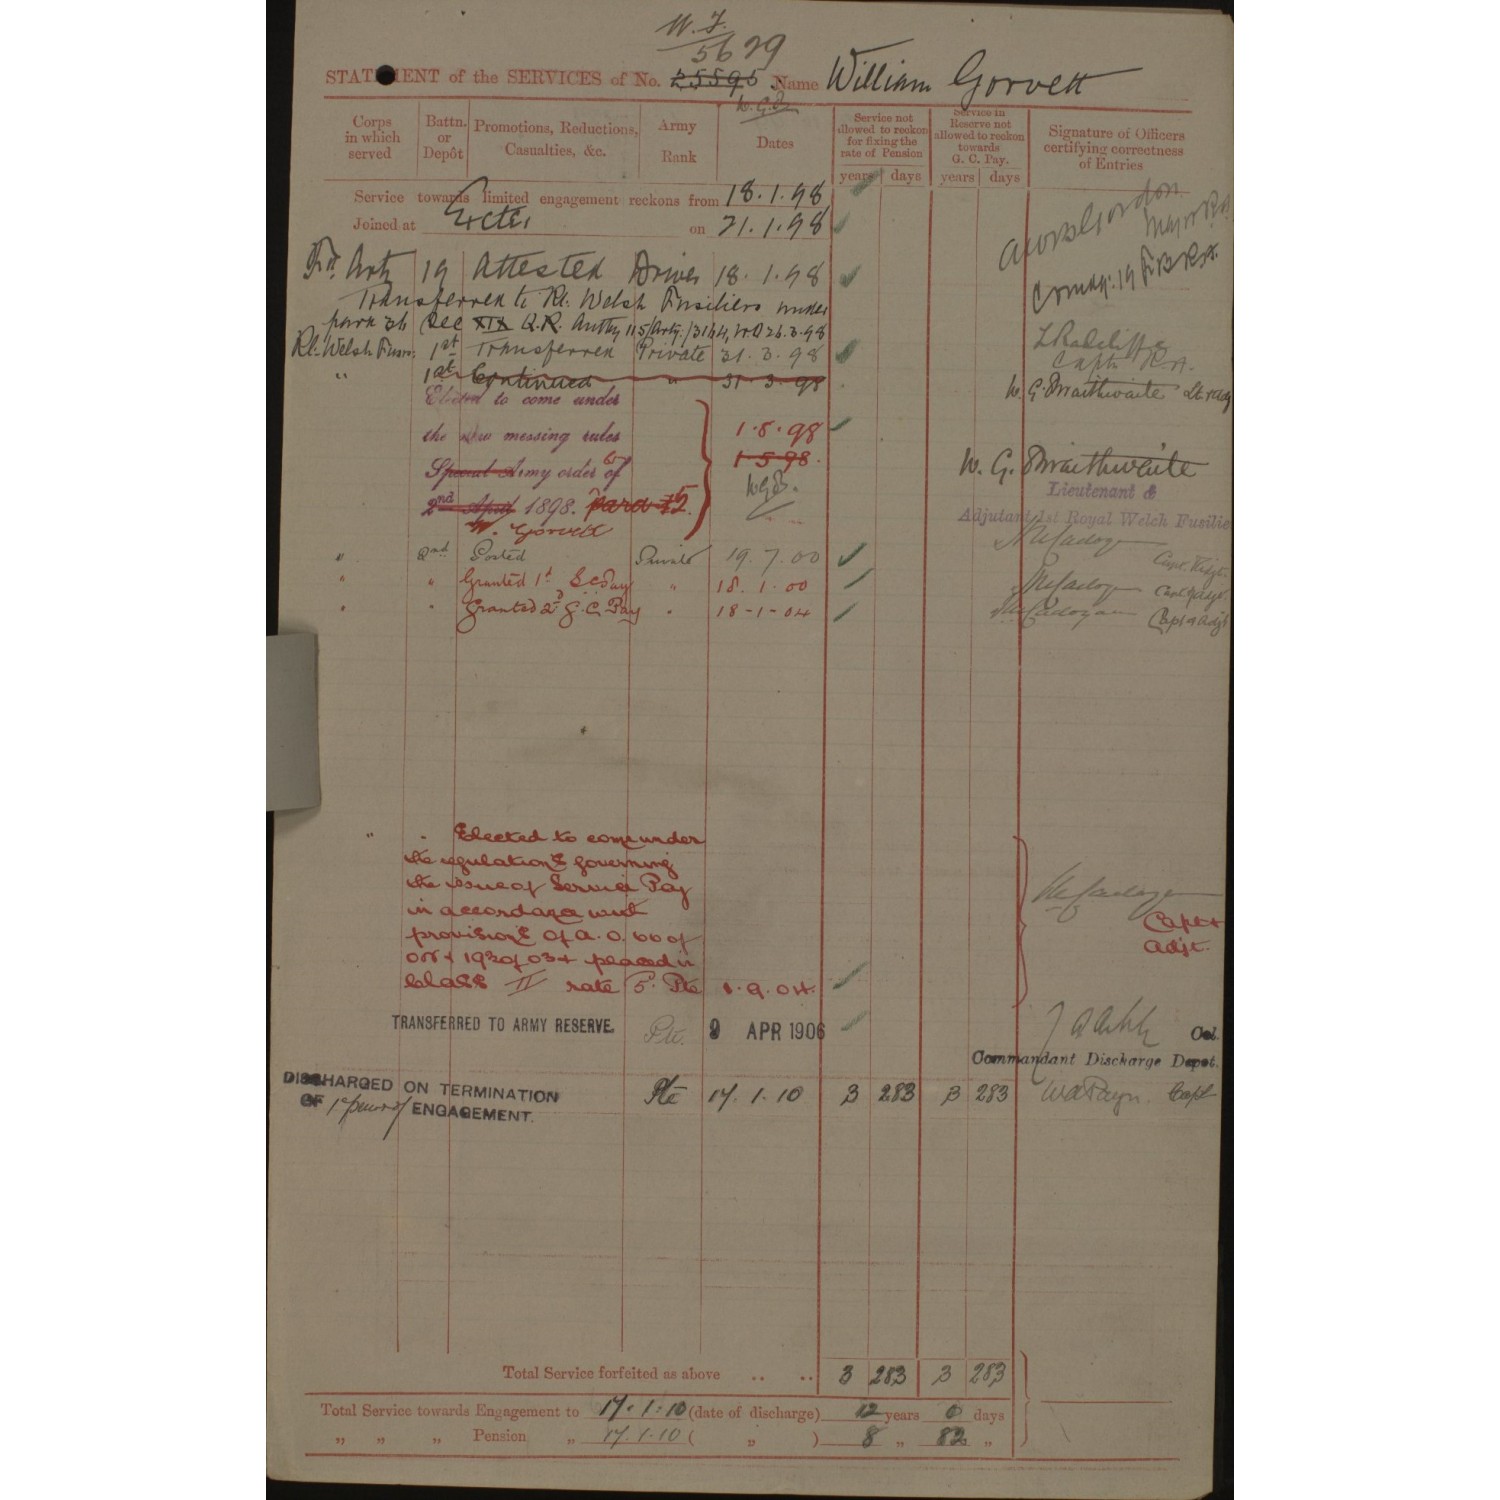 W.F.
5629
STATEMENT of the SERVICES of No. 25595 Name William Gorvett
W.G.B.
Corps in which served
Battn. or Depôt
Promotions, Reductions, Casualties, &c.
Army Rank
Dates
Service not allowed to reckon for fixing the rate of Pension
years days
Service in Reserve not allowed to reckon towards G. C. Pay.
years days
Signature of Officers certifying correctness of Entries
Service towards limited engagement reckons from 18.1.98
Joined at Exeter on 21.1.98
Gordon
Major R.A.
Fd. Arty 19 Attested Driver 18.1.98
Comdg. 19 F.B.R.A.
Transferred to Rl. Welsh Fusiliers under
para 36 Sec XIX Q.R. Authy 115/Arty./3164, W.O 26.3.98
Rl. Welsh Fusrs. 1st Transferred Private 31.3.98 Radcliffe
Capt. R.A.
" 1st Continued " 31.3.98 W. G. Braithwaite Lt. & Adj
Elected to come under
the new messing rules 1.8.98
Special Army order of 1 5 98. W. G. Braithwaite
2nd April 1898. para 15. W.G.B. Lieutenant &
Adjutant 1st Royal Welch Fusilie
W. Gorvett
" 2nd Posted Private 19.7.00 Cadogan Capt. & Adjt.
" " Granted 1st G.C. Pay " 18.1.00 Cadogan Capt & Adjt.
" " Granted 2d G.C. Pay " 18-1-04 Cadogan Capt & Adjt
" " Elected to come under
the regulations governing
the issue of Service Pay
in accordance with
provisions of A.O. 66 of
02 & 192 of 03 & placed in
Class II rate 5d. Pte 1.9.04.
Cadogan
Capt &
Adjt.
TRANSFERRED TO ARMY RESERVE. Pte. 9 APR 1906 Col.
Commandant Discharge Depot.
DISCHARGED ON TERMINATION
OF 1st period of ENGAGEMENT. Pte 17.1.10 3 283 3 283 Payn. Capt
Total Service forfeited as above .. .. 3 283 3 283
Total Service towards Engagement to 17.1.10 (date of discharge) 12 years 0 days
" " " Pension " 17.1.10 ( " ) 8 " 82 "